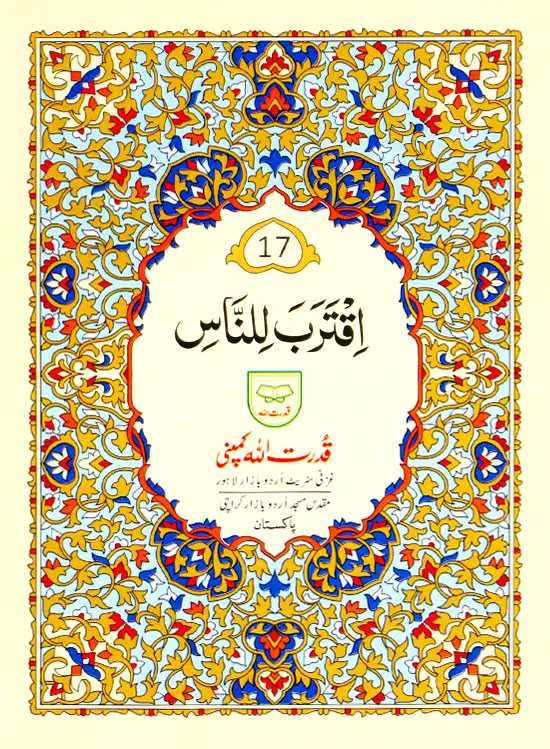 17
اِقْتَرَبَ لِلنَّاسِ
قدرت اللہ
قُدرت اللہ کمپنی
غزنی سٹریٹ اُردو بازار لاہور
مقدس مسجد اُردو بازار کراچی
پاکستان